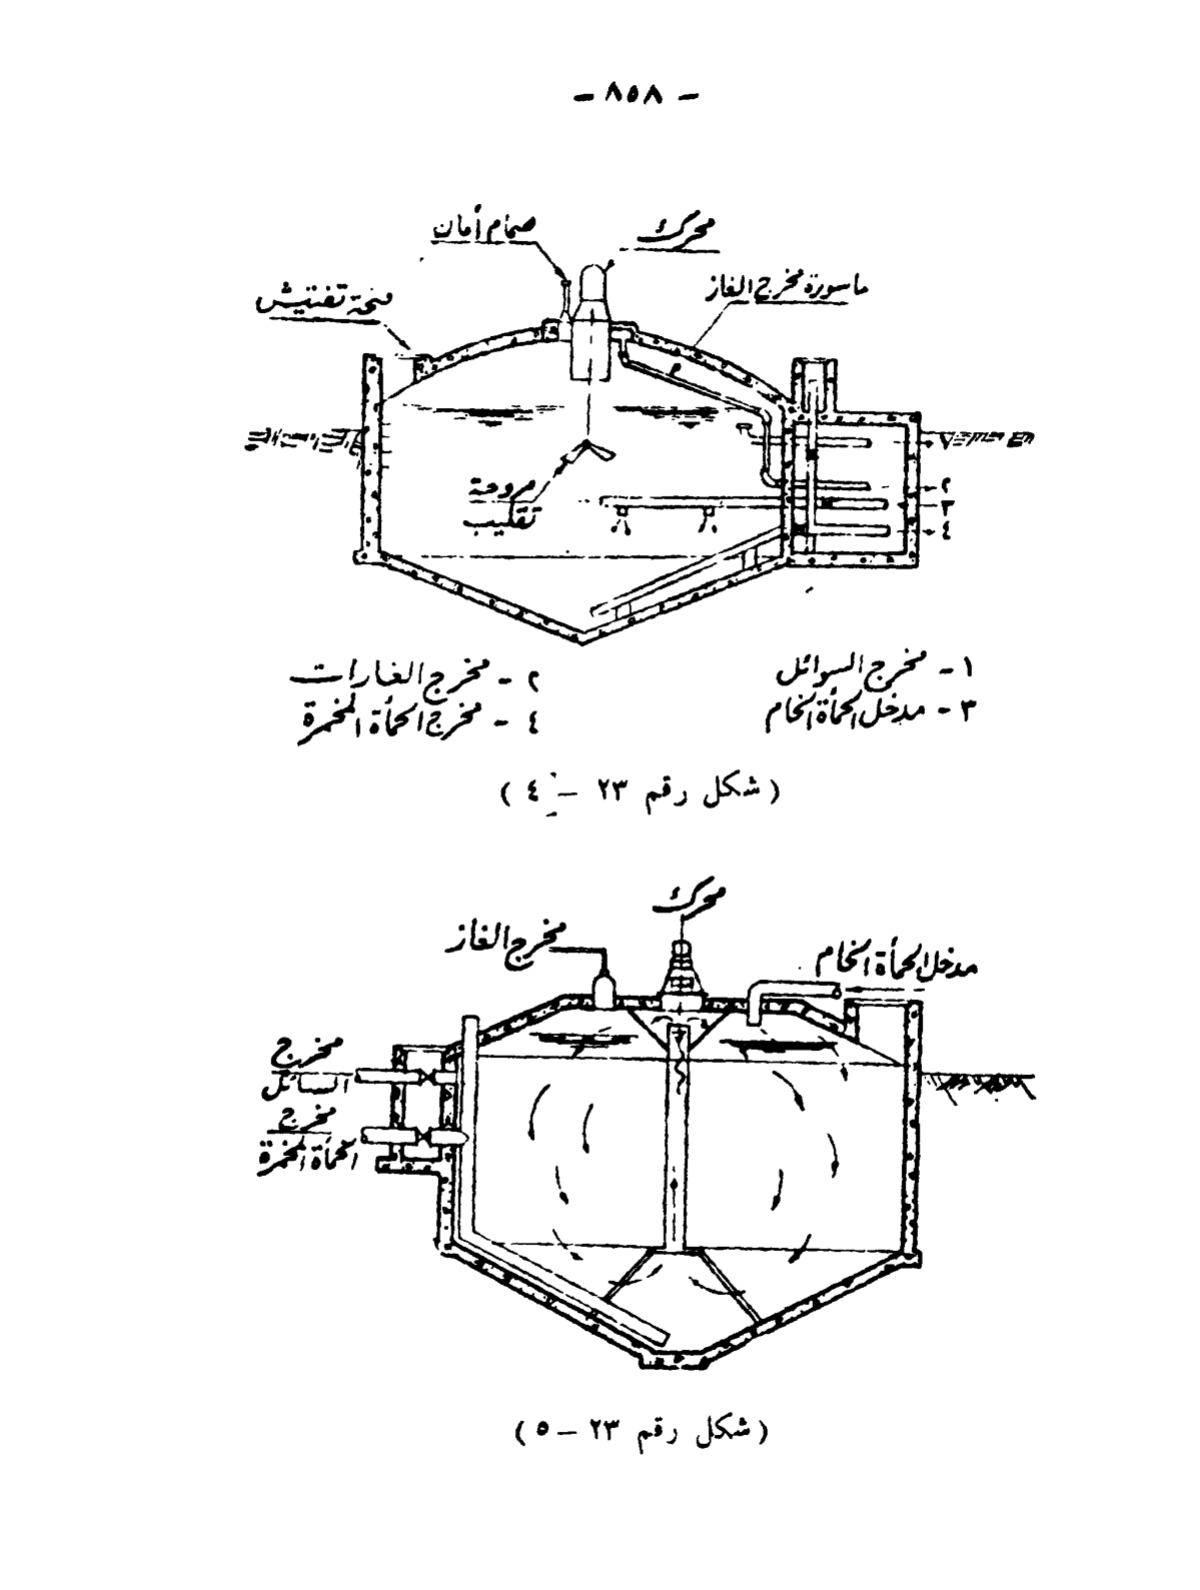 - ٨٥٨ -
صمام أمان
محرك
ماسورة مخرج الغاز
فتحة تفتيش
مروحة
تقليب
٢
٣
٤
١ - مخرج السوائل
٢ - مخرج الغازات
٣ - مدخل الحمأة الخام
٤ - مخرج الحمأة المخمرة
(شكل رقم ٢٣ - ٤)
محرك
مخرج الغاز
مدخل الحمأة الخام
مخرج
السائل
مخرج
الحمأة المخمرة
(شكل رقم ٢٣ - ٥)